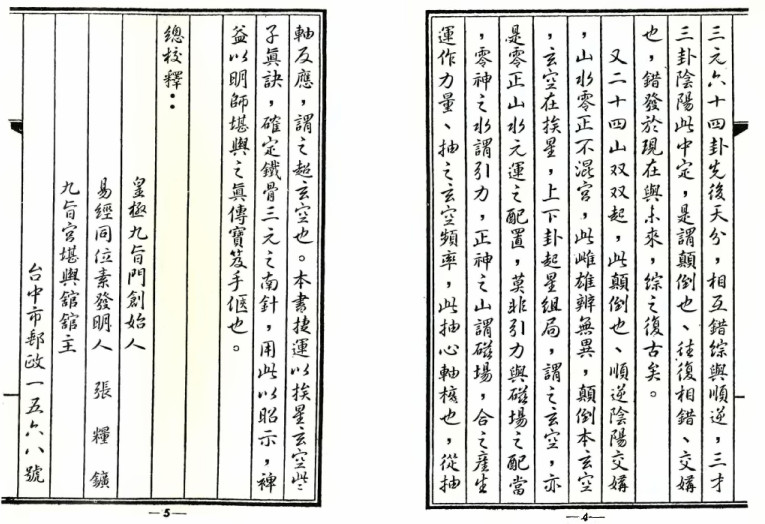 三元六十四卦先後天分，相互錯綜與順逆，三才
三卦陰陽此中定，是謂顛倒也、往復相錯、交媾
也，錯發於現在與未來，綜之復古矣。
又二十四山双双起，此顛倒也、順逆陰陽交媾
，山水零正不混宮，此雌雄辨無異，顛倒本玄空
，玄空在挨星，上下卦起星組局，謂之玄空，亦
是零正山水元運之配置，莫非引力與磁場之配當
，零神之水謂引力，正神之山謂磁場，合之產生
運作力量、抽之玄空頻率，此抽心軸核也，從抽
—4—
軸反應，謂之超玄空也。本書捷運以挨星玄空些
子眞訣，確定鐵骨三元之南針，用此以昭示，裨
益以明師堪輿之眞傳寶笈手偃也。
總校釋：
皇極九旨門創始人
易經同位素發明人 張糧鑛
九旨宮堪輿舘舘主
台中市郵政一五六八號
—5—